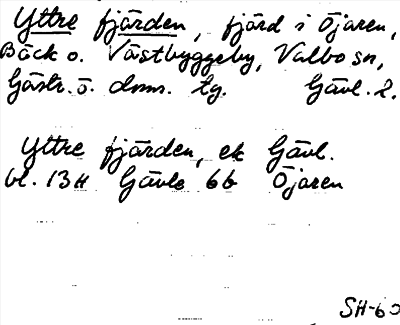 Yttre fjärden, fjärd i Öjaren,
Bäck o. Västbyggeby, Valbo sn,
Gästr. ö. doms. tg. Gävl. l.
Yttre fjärden, ek Gävl.
bl. 13H Gävle 6b Öjaren
SH-60